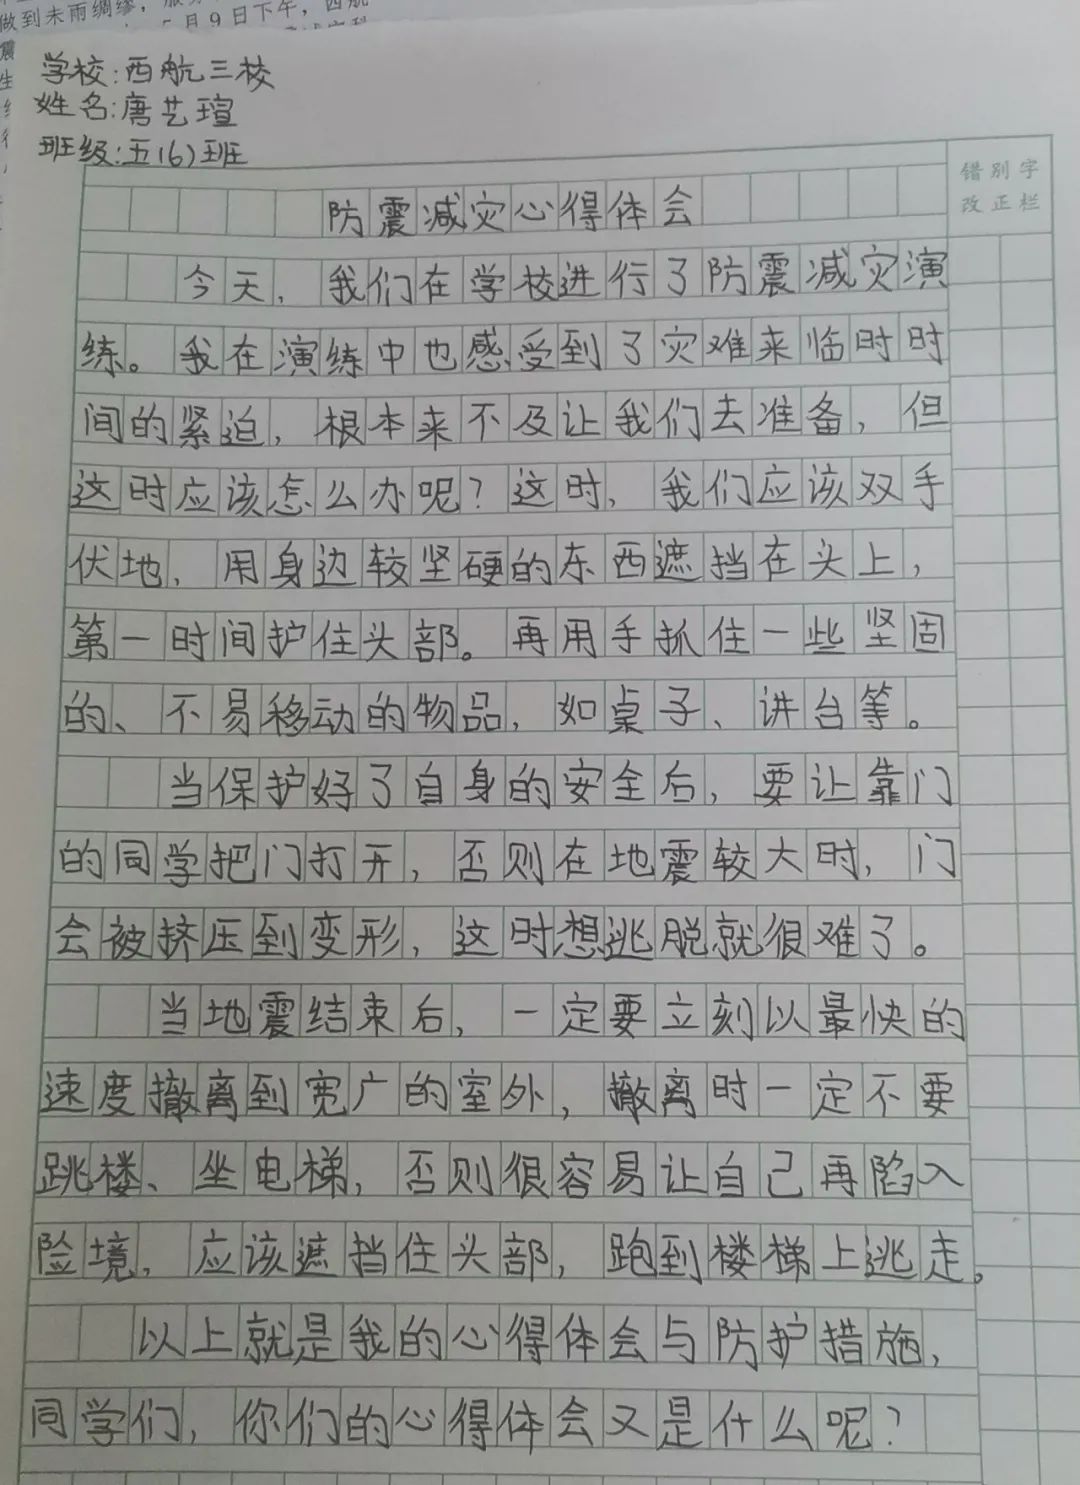 做到未雨绸缪，服务
5月9日下午，西航
学校:西航三校
姓名:唐艺瑄
班级:五(6)班
错别字
改正栏
防震减灾心得体会
今天，我们在学校进行了防震减灾演
练。我在演练中也感受到了灾难来临时时
间的紧迫，根本来不及让我们去准备，但
这时应该怎么办呢？这时，我们应该双手
伏地，用身边较坚硬的东西遮挡在头上，
第一时间护住头部。再用手抓住一些坚固
的、不易移动的物品，如桌子、讲台等。
当保护好了自身的安全后，要让靠门
的同学把门打开，否则在地震较大时，门
会被挤压到变形，这时想逃脱就很难了。
当地震结束后，一定要立刻以最快的
速度撤离到宽广的室外，撤离时一定不要
跳楼、坐电梯，否则很容易让自己再陷入
险境，应该遮挡住头部，跑到楼梯上逃走。
以上就是我的心得体会与防护措施，
同学们，你们的心得体会又是什么呢？